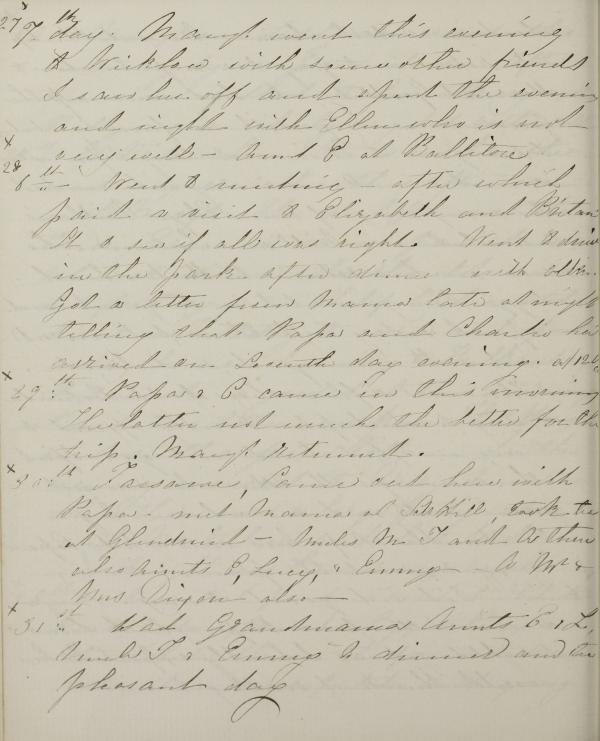 27 7th day. Margt. went this evening
to Wicklow with some other friends
I saw her off and spent the evening
and night with Ellen who is not
very well - Aunt E at Ballitore
28 th Went to meeting - after which
paid a visit to Elizabeth and
to see if all was right. Went to drive
in the park after dinner with
Got a letter from Mama late at night
telling that Papa and Charlie had
arrived on Seventh day evening. at 12
29th Papa & C came in this morning
The latter not much the better for the
trip. Margt. returned.
30th Fassaroe, Came out here with
Papa - met Mama at took tea
at - Uncles M T and A there
also aunts E, Lucy, & Emmy - A Mr &
Mrs Dixon also -
31st Had Grandmama Aunts E & L,
Uncle T & Emmy to dinner and tea
pleasant day